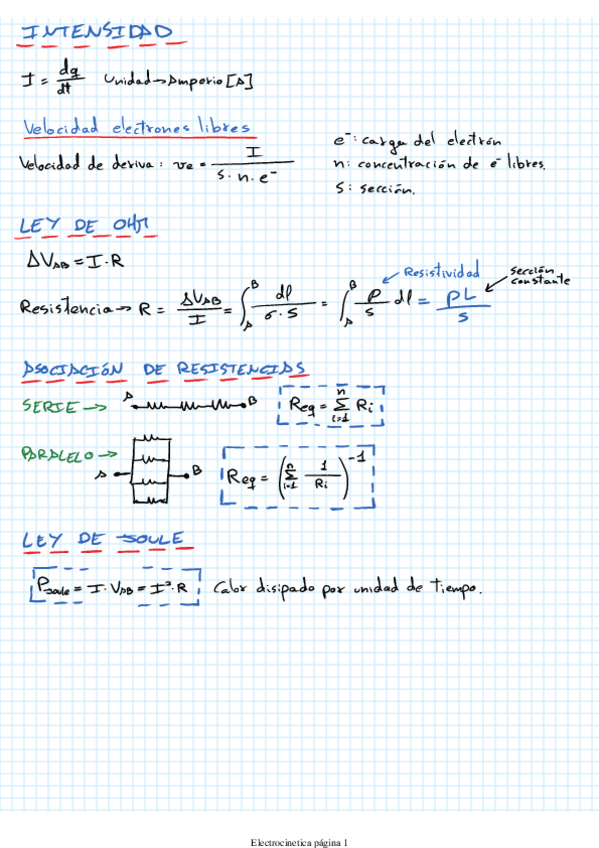 INTENSIDAD
I = dq/dt Unidad → Amperio [A]
Velocidad electrones libres
Velocidad de deriva: ve = I / (s · n · e⁻)
e⁻: carga del electrón
n: concentración de e⁻ libres.
s: sección.
LEY DE OHM
ΔV_AB = I · R
Resistividad
sección constante
Resistencia → R = ΔV_AB / I = ∫_A^B dl / (σ · s) = ∫_A^B ρ/s dl = ρL / s
ASOCIACIÓN DE RESISTENCIAS
SERIE → A B Req = Σ_{i=1}^{n} Ri
PARALELO → A B Req = (Σ_{i=1}^{n} 1/Ri)^{-1}
LEY DE JOULE
P_Joule = I · V_AB = I² · R Calor disipado por unidad de tiempo.
Electrocinetica página 1